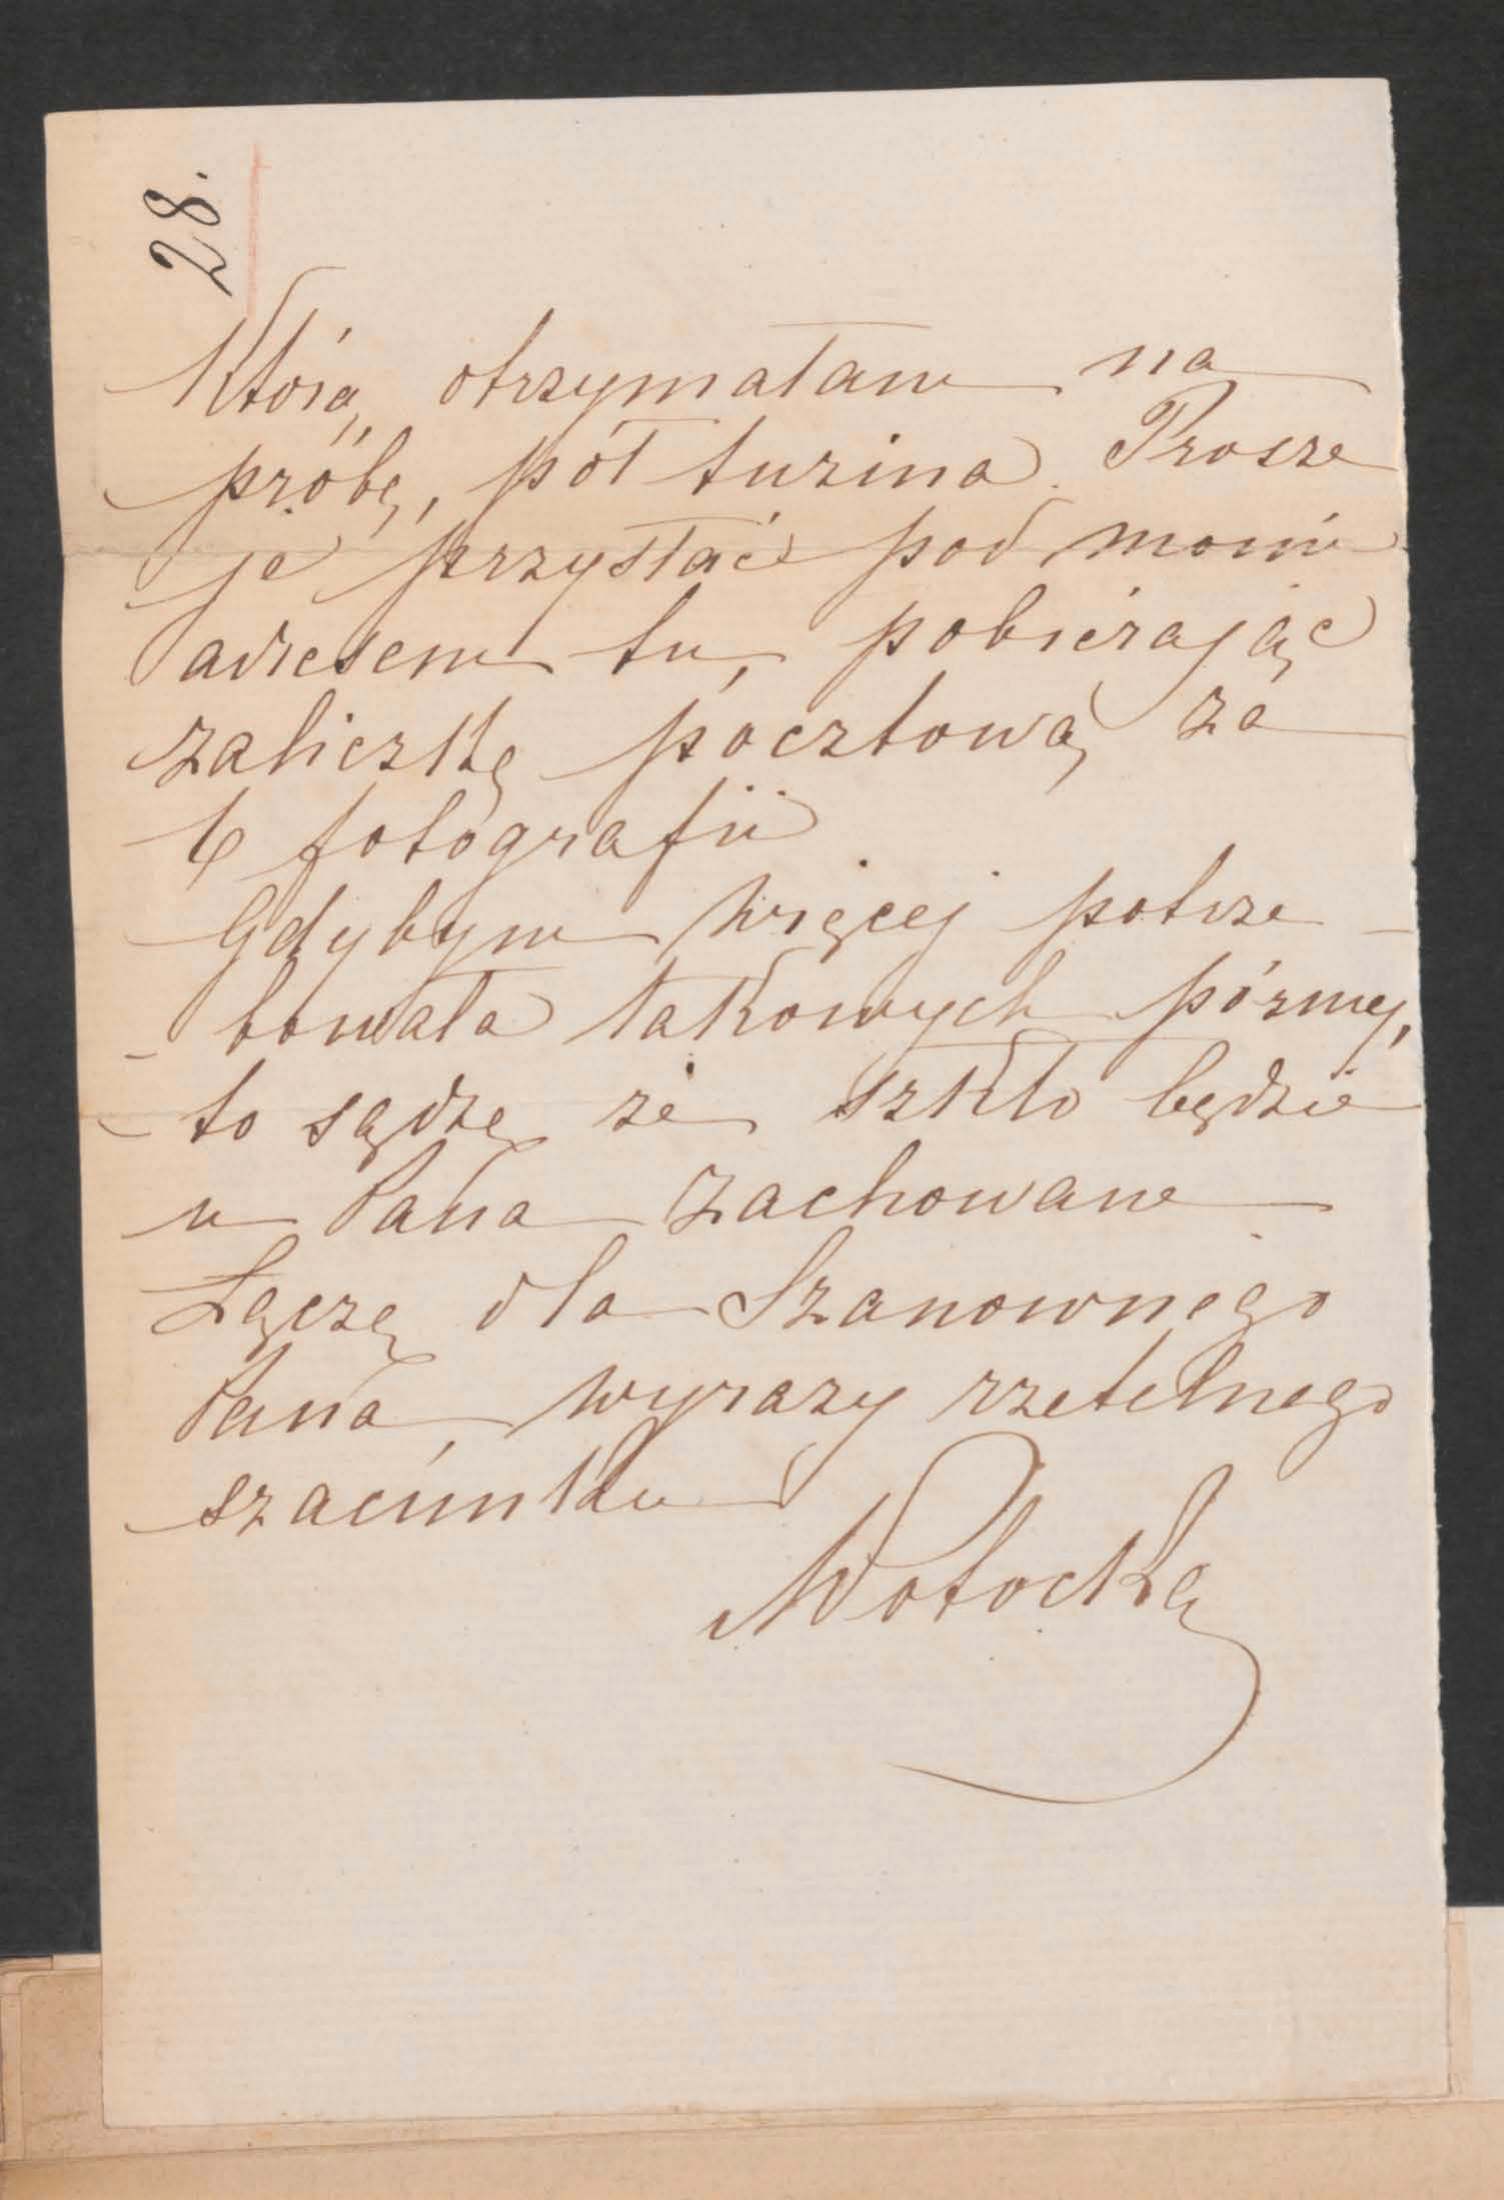 28.
którą otrzymałam na
próbę, pół tuzina. Prosze
je przysłać pod moim
adresem tu, pobierając
zaliczkę pocztową za
6 fotografii
Gdybym więcej potrze-
-bowała takowych później,
to sądzę że szkło będzie
u Pana zachowane
Łączę dla Szanownego
Pana, wyrazy rzetelnego
szacunku
Potocka